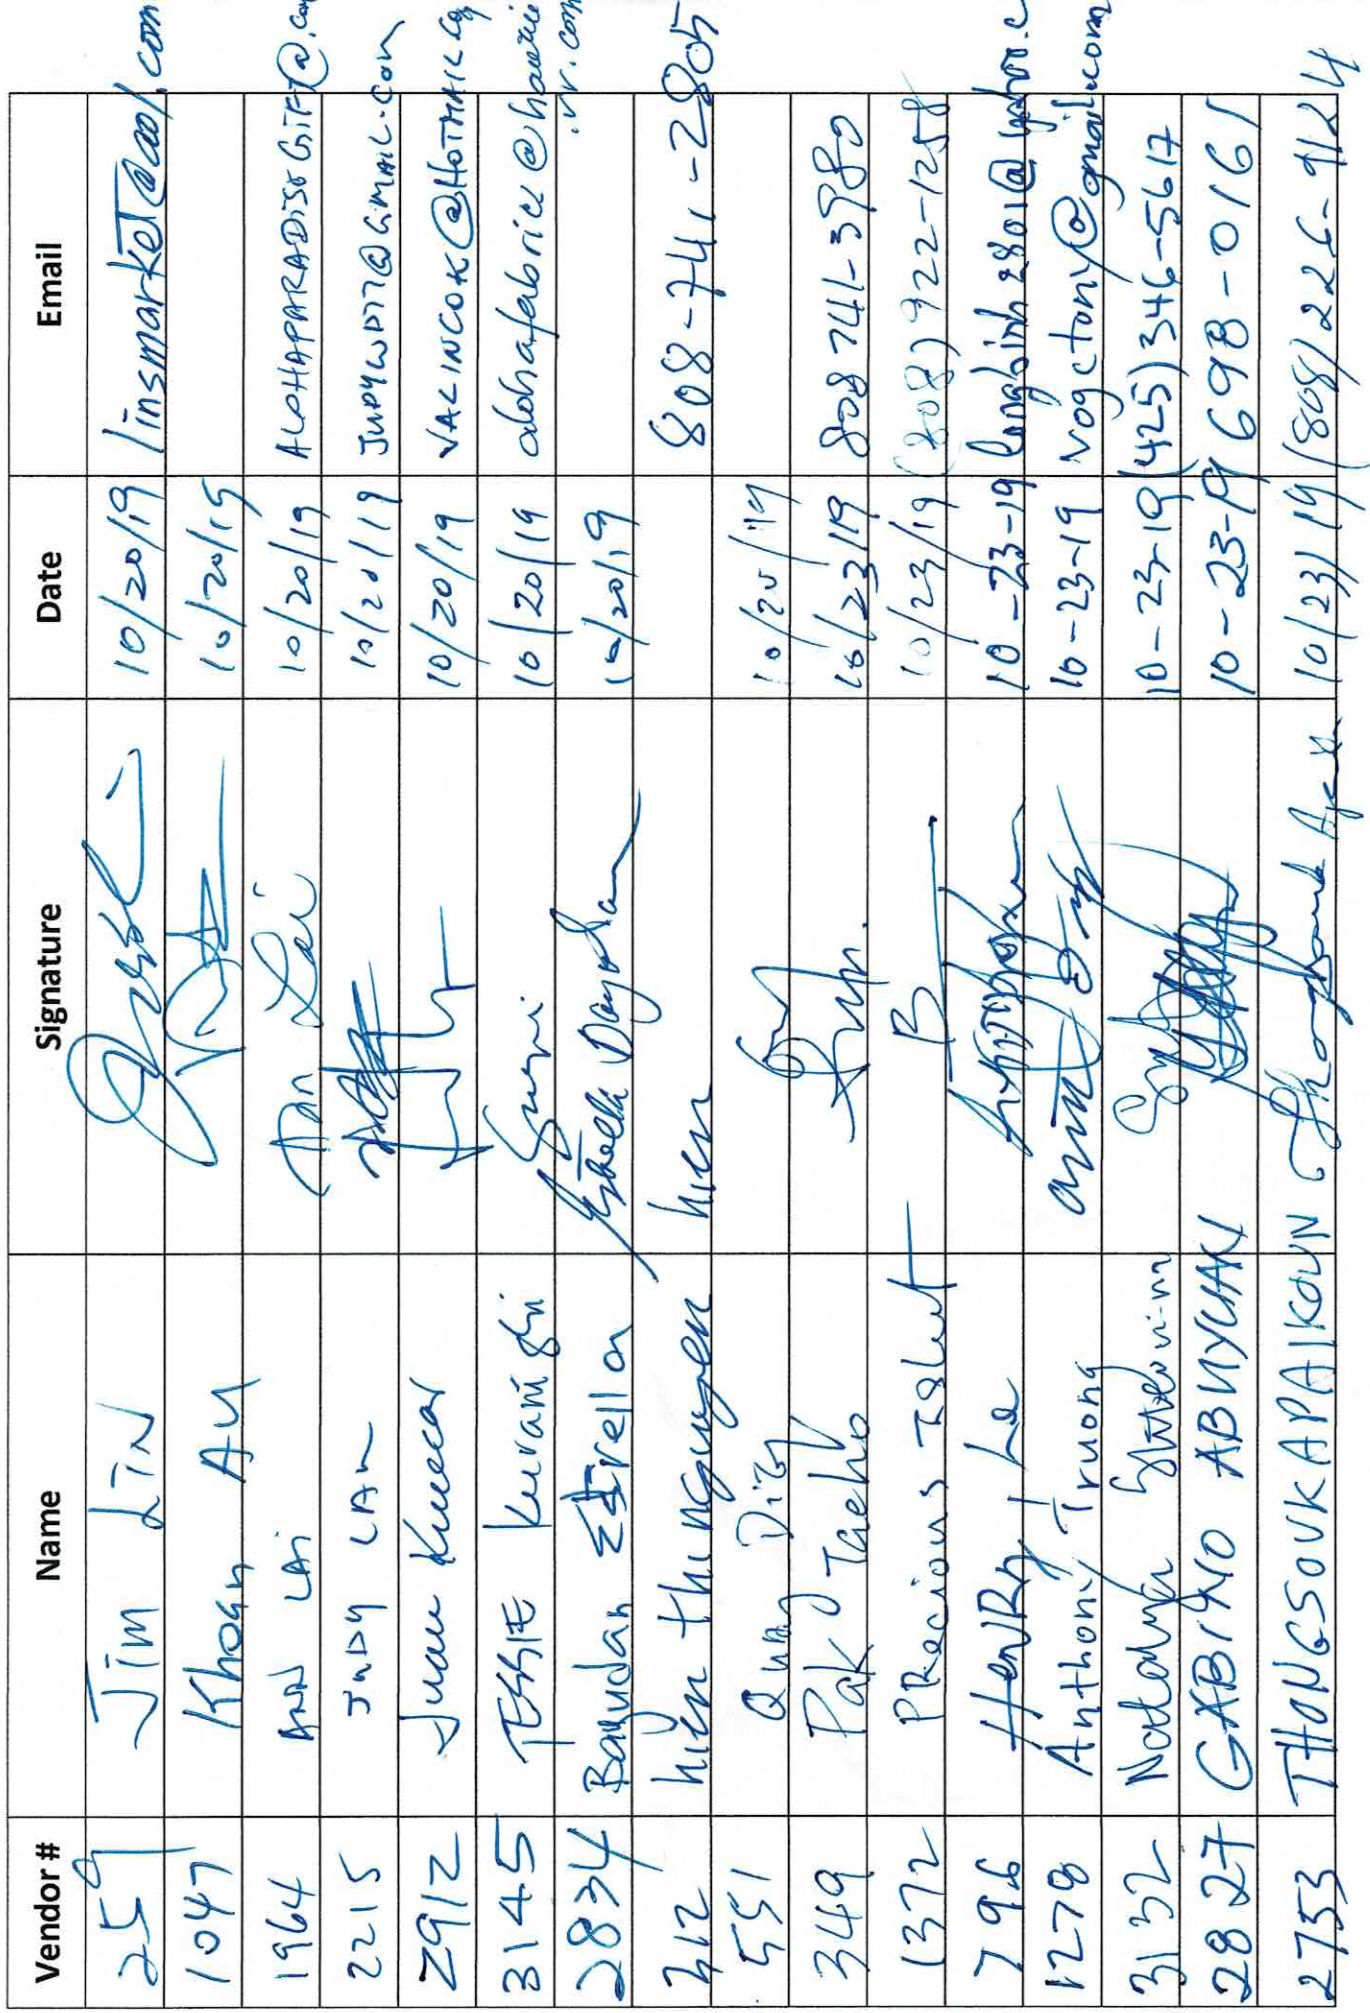 Vendor # Name Signature Date Email
259 Jim Lin 10/20/19 linsmarket@aol.com
1047 Khoan AU 10/20/19
1964 ANN LAi Ann Lai 10/20/19 ALOHAPARADISEGIFT@
2215 JUDY LAM 10/20/19 JUDYWDT7@GMAIL.COM
2912 Juan 10/20/19 VALINCOK@HOTMAIL.CO
3145 TESSIE Kuranishi 10/20/19 alohafabrice@hawaii.rr.com
2834 Bayudan Estrella Estrella Bayudan 10/20/19
312 hien thi nguyen hien 808-741-2805
551 Quay Diep 10/20/19
349 Pak Taeho 10/23/19 808 741-3980
1372 Precious Islet 10/23/19 (808) 922-1258
796 HenRy Le 10-23-19 longbinh2801@yahoo.c
1278 Anthony Truong 10-23-19 vogctony@gmail.com
3132 Nataya 10-23-19 (425) 346-5617
2827 GABINO ABUYUAN 10-23-19 698-0161
2753 THONGSOUK APAIKOUN 10/23/19 (808) 226-9124